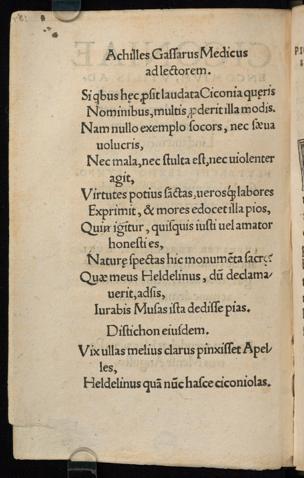 Achilles Gassarus Medicus
ad lectorem.
Si qbus hęc ꝓsit laudata Ciconia quęris
Nominibus, multis ꝓderit illa modis.
Nam nullo exemplo socors, nec sæua
uolucris,
Nec mala, nec stulta est, nec uiolenter
agit,
Virtutes potius sāctas, uerosq́; labores
Exprimit, & mores edocet illa pios,
Quin igitur, quisquis iusti uel amator
honesti es,
Naturę spectas hic monumēta sacrę?
Quæ meus Heldelinus, dū declama/
uerit, adsis,
Iurabis Musas ista dedisse pias.
Distichon eiusdem.
Vix ullas melius clarus pinxisset Apel/
les,
Heldelinus quā nūc hasce ciconiolas.